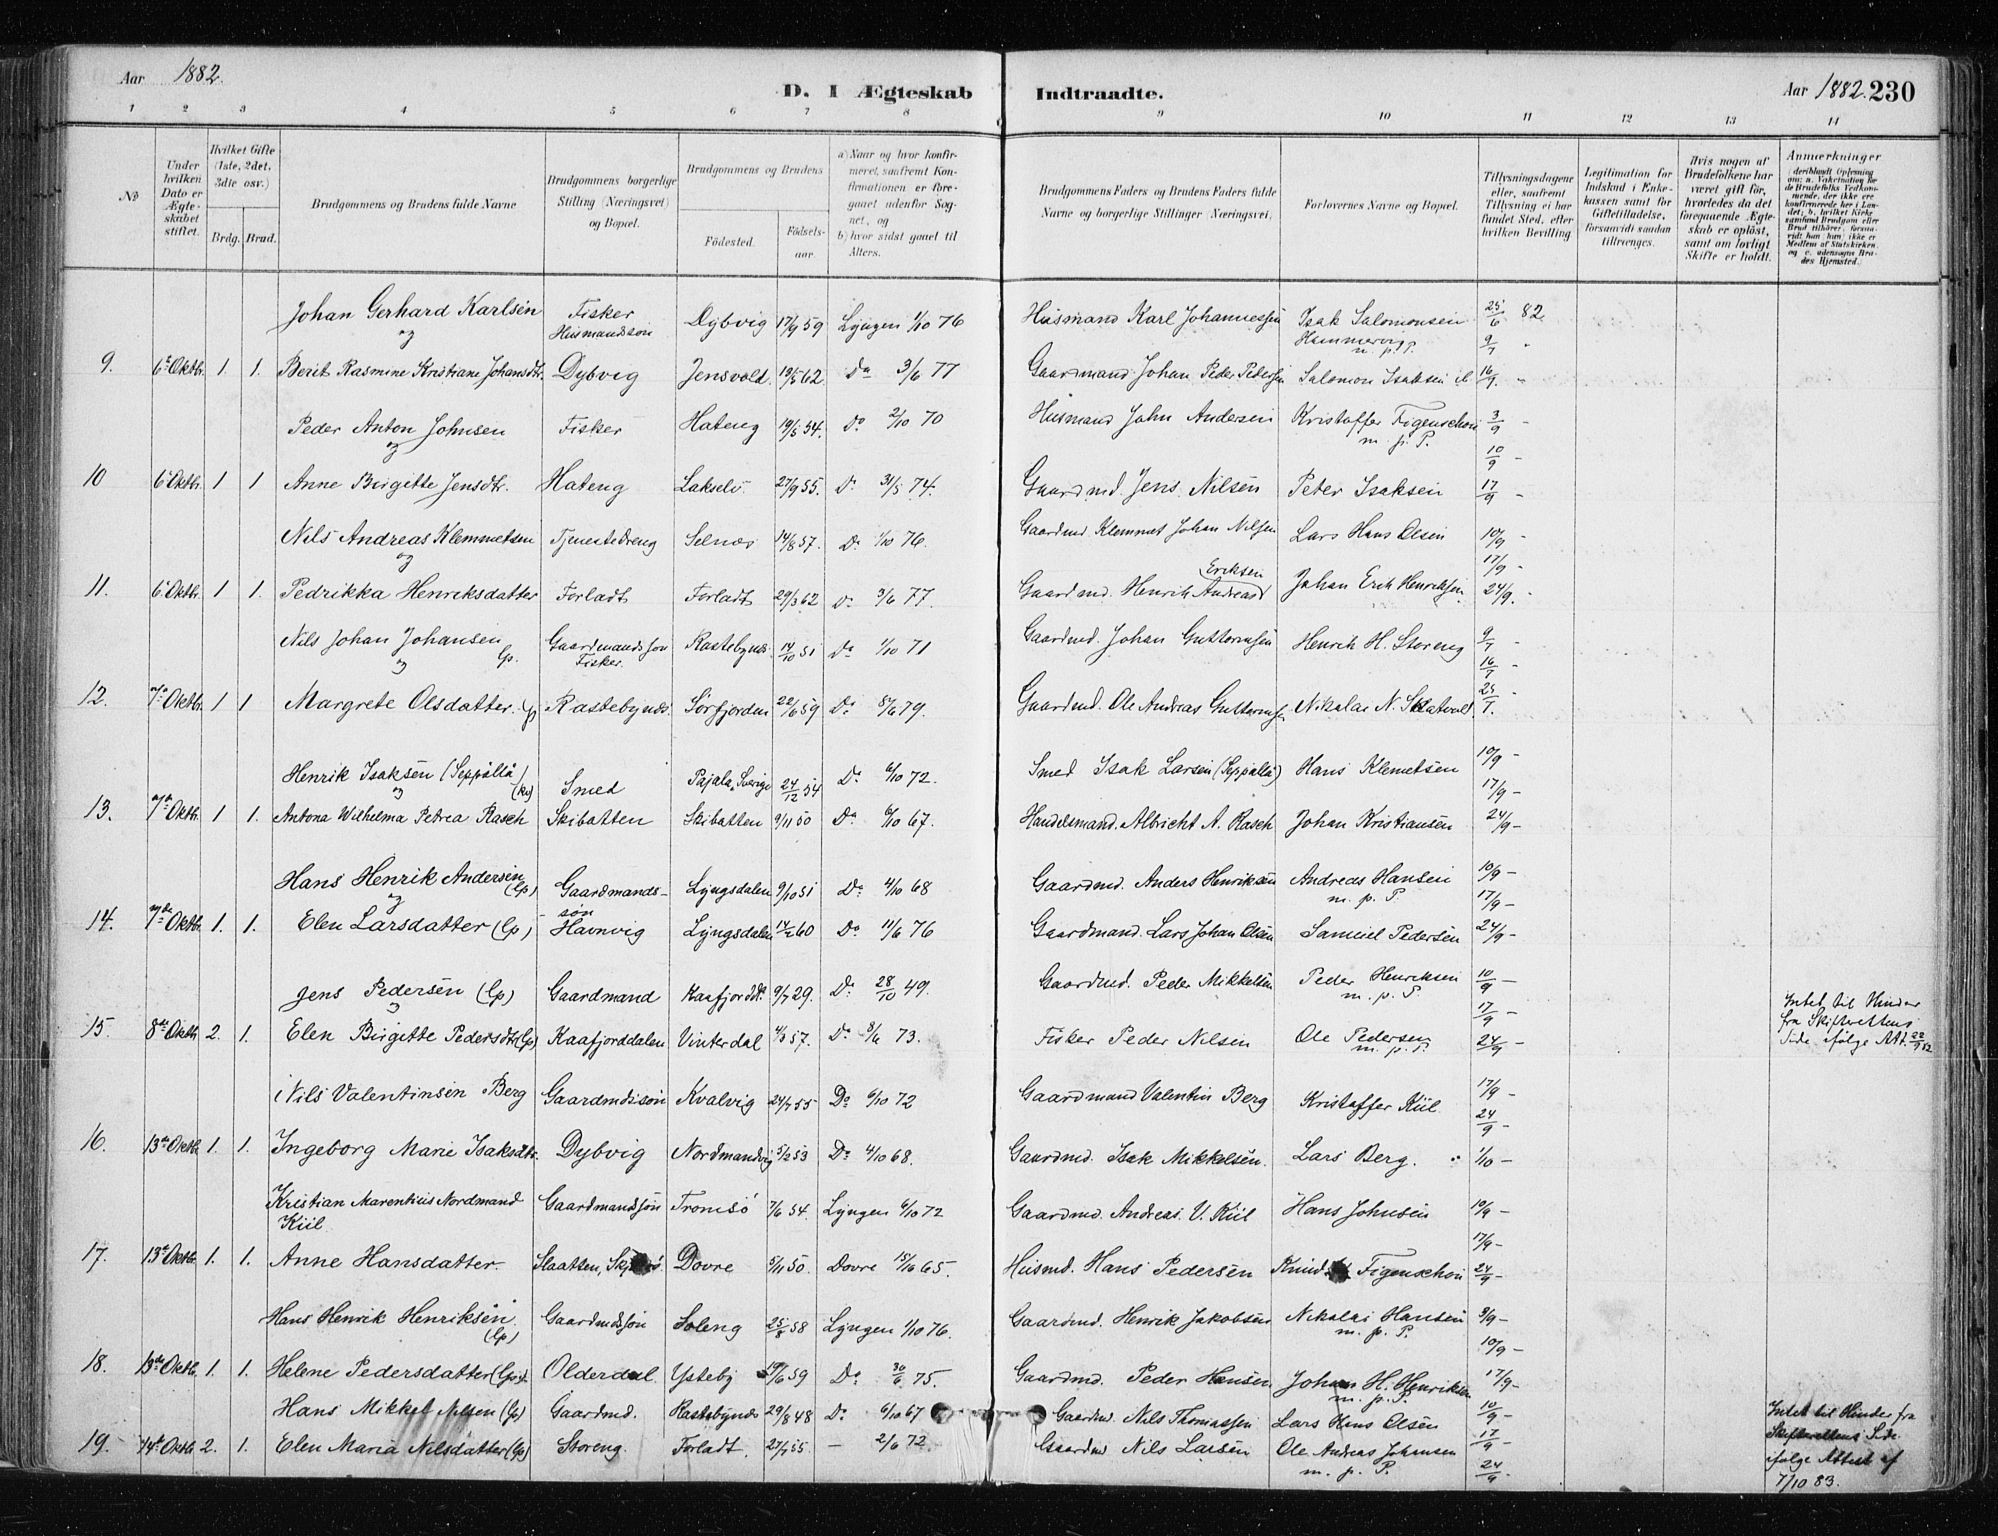 Aar 1882.
D. I Ægteskab Indtraadte.
Aar 1882. 230
1 2 3 4 5 6 7 8 9 10 11 12 13 14
No
Under hvilken Dato er Ægteskabet stiftet.
Hvilket Gifte (1ste, 2det, 3die osv.)
Brdg. Brud.
Brudgommens og Brudens fulde Navne
Brudgommens borgerlige Stilling (Næringsvei) og Bopæl.
Brudgommens og Brudens
Fødested. Fødselsaar.
a) Naar og hvor konfirmeret, saafremt Konfirmationen er foregaaet udenfor Sognet, og
b) hvor sidst gaaet til Alters.
Brudgommens Faders og Brudens Faders fulde Navne og borgerlige Stillinger (Næringsvei).
Forlovernes Navne og Bopæl.
Tillysningsdagene eller, saafremt Tillysning ei har fundet Sted, efter hvilken Bevilling
Legitimation for Indskud i Enkekassen samt for Giftetilladelse, forsaavidt saadan tiltrænges.
Hvis nogen af Brudefolkene har været gift før, hvorledes da det foregaaende Ægteskab er opløst, samt om lovligt Skifte er holdt.
Anmærkninger
Johan Gerhard Karlsen Fisker Dybvig 17/9 59 Lyngen 1/10 76 Husmand Karl Johannessen Isak Salomonsen 25/6 82
og Husmandsøn Hammervig m. p. P. 9/7 "
9. 6te Oktbr. 1. 1. Berit Rasmine Kristiane Johansdtr. Dybvig Jensvold 19/5 62 Do 3/6 77 Gaardmand Johan Peder Pedersen Salomon Isaksen 16/9. "
Peder Anton Johnsen Fisker Hateng 19/5 54. Do 2/10 70 Husmand John Andersen Kristoffer Figenschou 3/9 -
og m. p. P. 10/9 -
10 6te Oktbr. 1 1 Anne Birgitte Jensdtr. Hateng Lakselv 27/9 55. Do 31/5 74. Gaardmd. Jens Nilsen Peter Isaksen 17/9 -
Nils Andreas Klemmetsen Tjenestedreng Selnes 14/8 57. Do 1/10 76. Gaardmd Klemmet Johan Nilsen Lars Hans Olsen 10/9 -
og Eriksen 17/9 -
11. 6te Oktbr. 1 1 Pedrikka Henriksdatter Forladt Forladt 29/3 62 Do 3/6 77. Gaardmd. Henrik Andreas Johan Erik Henriksen 24/9. -
Nils Johan Johansen Lp. Gaardmandsøn Rastebynes 14/10 51 Do 1/10 71 Gaardmd. Johan Guttormsen Henrik H. Storeng 9/7 -
og Fisker. 16/7 -
12. 7de Oktbr. 1 1 Margrete Olsdatter. Lp Rastebynes. Sørfjorden 22/6 59 Do 8/6 79. Gaardmd. Ole Andreas Guttormsen Nikolai N. Skatvold 23/7. -
Henrik Isaksen (Seppälä) (kv) Smed Pajala, Sverige 24/12 54 Do 6/10 72. Smed Isak Larsen (Seppälä) Hans Klemetsen 10/9 -
og 17/9 -
13. 7de Oktbr. 1 1. Antona Wilhelma Petrea Rasch Skibotten Skibotten 9/11 50 Do 6/10 67. Handelsmand. Albricht A. Rasch Johan Kristiansen 24/9 -
Hans Henrik Andersen (Lp) Gaardmandssøn Lyngsdalen 9/10 51 Do 4/10 68 Gaardmd. Anders Henriksen Andreas Hansen 10/9 -
og m. p. P. 17/9 -
14. 7de Oktbr. 1. 1. Elen Larsdatter (Lp) Havnvig Lyngsdalen 14/2 60 Do 11/6 76 Gaardmand. Lars Johan Olsen Samuel Pedersen 24/9 -
Jens Pedersen (Lp) Gaardmand Kaafjordd. 9/7 29. Do 28/10 49. Gaardmd. Peder Mikkelsen Peder Henriksen 10/9 -
og m. p. P. 17/9 -
15. 8de Oktbr. 2. 1. Elen Birgitte Pedersdtr (Lp) Kaafjorddalen Vinterdal 4/3 57. Do 8/6 73. Fisker Peder Nilsen Ole Pedersen m. p. P. 24/9 - Intet til Hinder fra Skifterettens Side ifølge Att. 22/9 82
Nils Valentinsen Berg Gaardmdsøn Kvalvig 24/7 55 Do 6/10 72 Gaardmand Valentin Berg Kristoffer Kiil 17/9 -
24/9 -
16. 13de Oktbr. 1. 1. Ingeborg Marie Isaksdtr. Dybvig Nordmandvig 5/2 53 Do 4/10 68. Gaardmd. Isak Mikkelsen. Lars Berg. 1/10 -
Kristian Marentius Nordmand Kiil Gaardmandsøn Tromsø 7/6 54. Lyngen 6/10 72 Gaardmd. Andreas. U. Kiil Hans Johnsen 10/9 -
17/9 -
17. 13de Oktbr. 1. 1. Anne Hansdatter. Slaatten, Dovre 5/11 50. Dovre 15/10 65. Husmd. Hans Pedersen Knud Figenschou 24/9 -
Hans Henrik Henriksen (Lp) Gaardmdsøn Soleng 25/8 58 Lyngen 1/10 76. Gaardmd. Henrik Jakobsen Nikolai Hansen 3/9 -
m. p. P. 10/9 -
18. 13de Oktbr. 1. 1. Helene Pedersdatter (Lp) Olderdal Ysteby 19/6 59 Do 30/6 75. Gaardmd. Peder Hansen Johan H. Henriksen m. p. P. 17/9 -
Hans Mikkel Nilsen (Lp) Gaardmd. Rastebynes 29/8 48 Do 6/10 67 Gaardmd Nils Thomassen Lars Hans Olsen 10/9 -
19. 14de Oktbr 2. 1. Elen Maria Nilsdatter (Lp) Storeng. Forladt. 27/7 55. - 2/6 72. Gaardmd Nils Larsen Ole Andreas Johansen m. p. P. 17/9 - 24/9 Intet til Hinder fra Skifterettens Side ifølge Attest af 7/10 83.